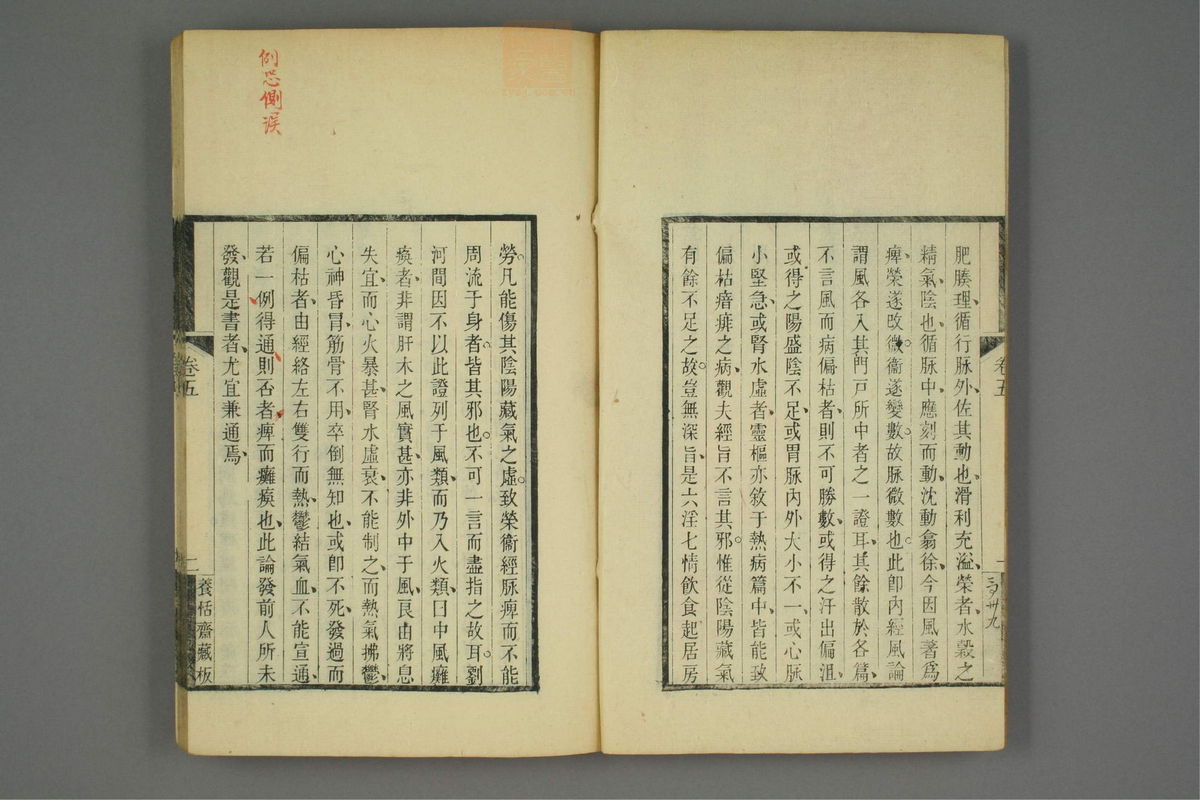 肥腠理循行脉外佐其動也滑利充溢榮者水穀之
精氣陰也循脉中應刻而動沈動翕徐今因風著爲
痺榮遂改微衞遂變數故脉微數也此卽內經風論
謂風各入其門戸所中者之一證耳其餘散於各篇
不言風而病偏枯者則不可勝數或得之汗出偏沮
或得之陽盛陰不足或胃脉內外大小不一或心脉
小堅急或腎水虛者靈樞亦敘于熱病篇中皆能致
偏枯瘖痱之病觀夫經旨不言其邪惟從陰陽藏氣
有餘不足之故豈無深旨是六淫七情飲食起居房
卷五
一
勞凡能傷其陰陽藏氣之虛致榮衞經脉痺而不能
周流于身者皆其邪也不可一言而盡指之故耳劉
河間因不以此證列于風類而乃入火類曰中風癱
瘓者非謂肝木之風實甚亦非外中于風良由將息
失宜而心火暴甚腎水虛衰不能制之而熱氣拂鬱
心神昏冒筋骨不用卒倒無知也或卽不死發過而
偏枯者由經絡左右雙行而熱鬱結氣血不能宣通
若一例得通則否者痺而癱瘓也此論發前人所未
發觀是書者尤宜兼通焉
卷五
二
養恬齋藏板
例恐側誤